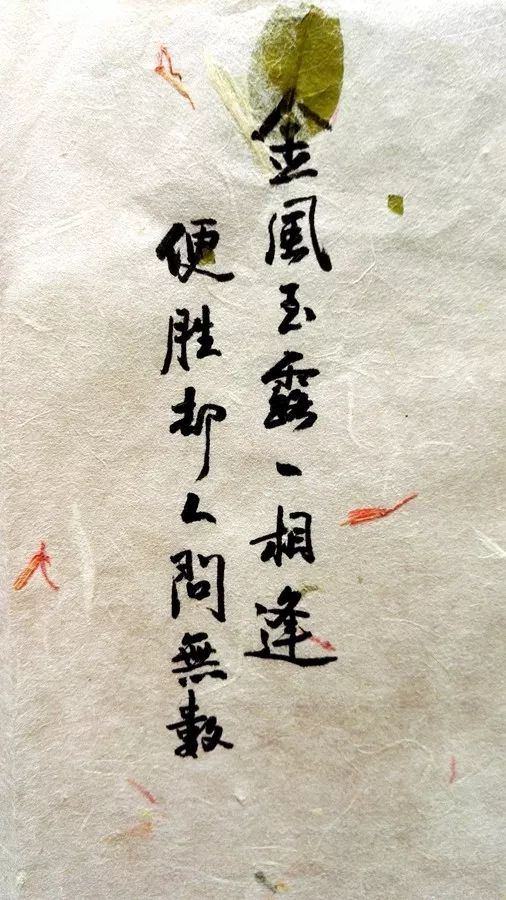 金風玉露一相逢
便胜却人間無數